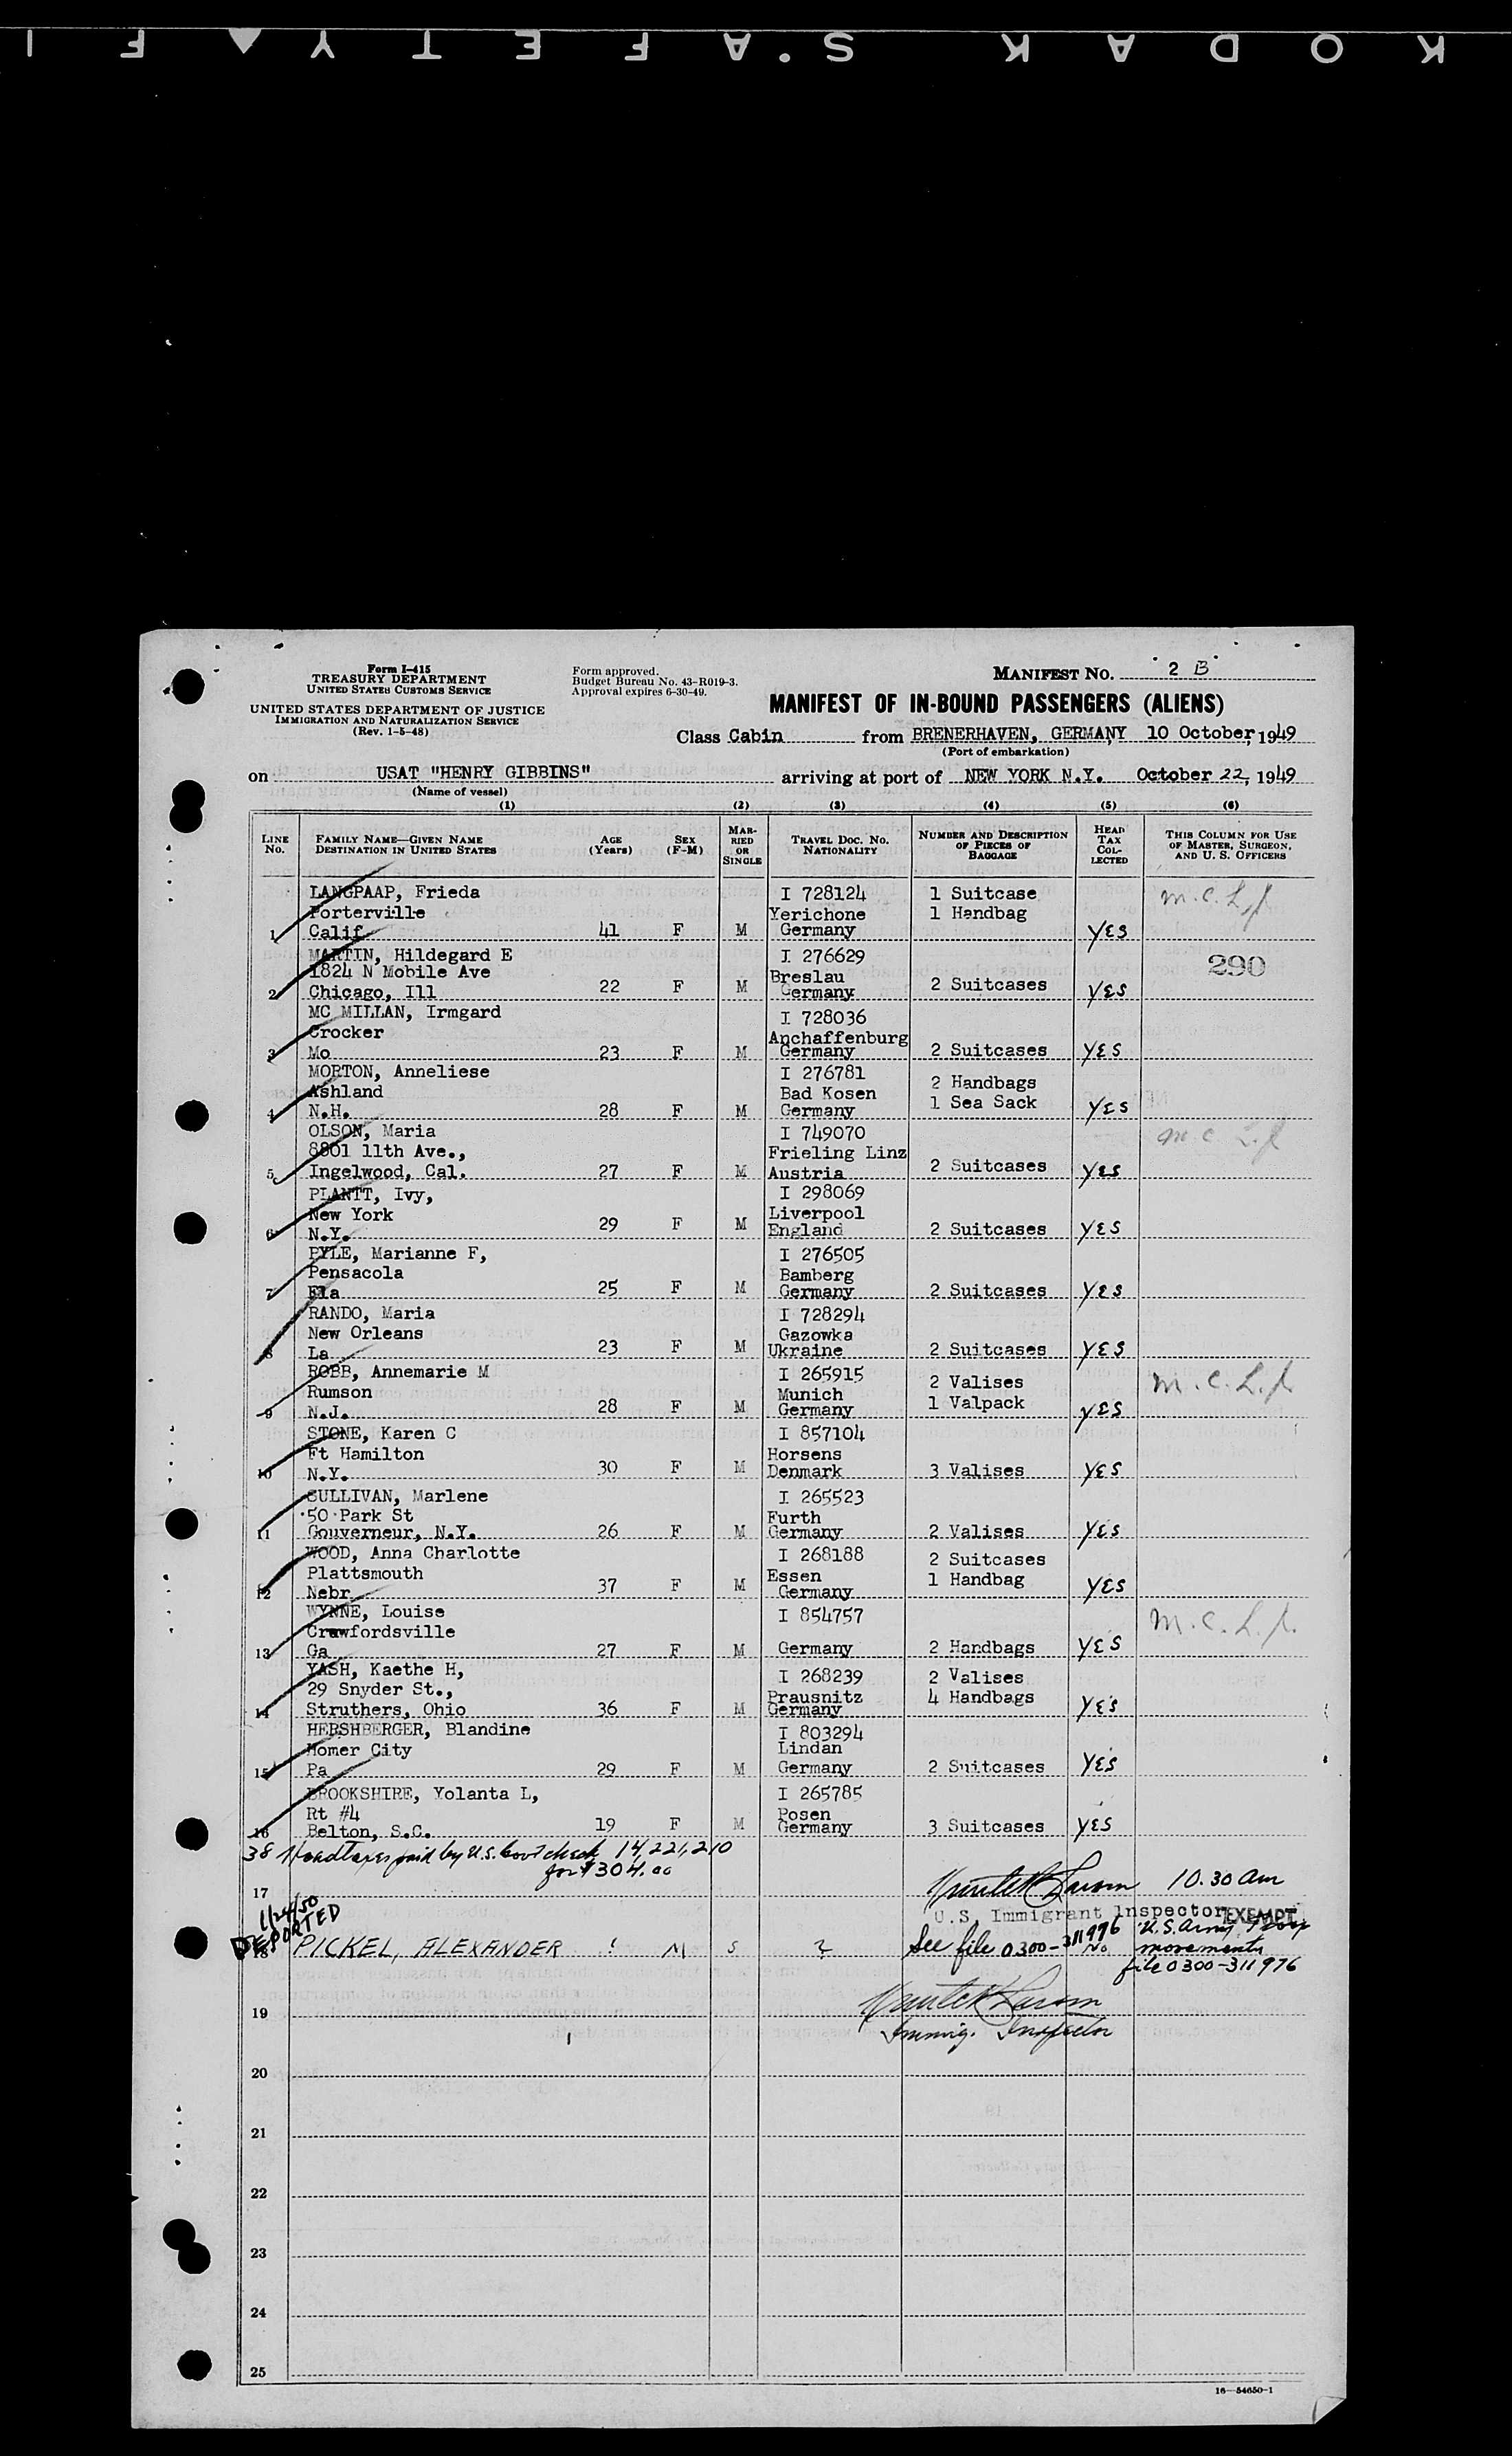 KODAK S.AFETY FI
Form I-415
TREASURY DEPARTMENT
UNITED STATES CUSTOMS SERVICE
UNITED STATES DEPARTMENT OF JUSTICE
IMMIGRATION AND NATURALIZATION SERVICE
(Rev. 1-5-48)
Form approved.
Budget Bureau No. 43-R019-3.
Approval expires 6-30-49.
MANIFEST NO. 2 B
MANIFEST OF IN-BOUND PASSENGERS (ALIENS)
Class Cabin from BRENERHAVEN, GERMANY 10 October, 1949
(Port of embarkation)
on USAT "HENRY GIBBINS" arriving at port of NEW YORK N.Y. October 22, 1949
(Name of vessel)
(1) (2) (3) (4) (5) (6)
LINE No. FAMILY NAME—GIVEN NAME DESTINATION IN UNITED STATES AGE (Years) SEX (F-M) MARRIED OR SINGLE TRAVEL DOC. NO. NATIONALITY NUMBER AND DESCRIPTION OF PIECES OF BAGGAGE HEAD TAX COLLECTED THIS COLUMN FOR USE OF MASTER, SURGEON, AND U. S. OFFICERS
LANGPAAP, Frieda I 728124 1 Suitcase
Porterville Yerichone 1 Handbag
1 Calif 41 F M Germany YES
MARTIN, Hildegard E I 276629 290
1824 N Mobile Ave Breslau
2 Chicago, Ill 22 F M Germany 2 Suitcases YES
MC MILLAN, Irmgard I 728036
Crocker Anchaffenburg
3 Mo 23 F M Germany 2 Suitcases YES
MORTON, Anneliese I 276781 2 Handbags
Ashland Bad Kosen 1 Sea Sack
4 N.H. 28 F M Germany YES
OLSON, Maria I 749070
8801 11th Ave., Frieling Linz
5 Ingelwood, Cal. 27 F M Austria 2 Suitcases YES
PLANTT, Ivy, I 298069
New York Liverpool
6 N.Y. 29 F M England 2 Suitcases YES
PYLE, Marianne F, I 276505
Pensacola Bamberg
7 Fla 25 F M Germany 2 Suitcases YES
RANDO, Maria I 728294
New Orleans Gazowka
8 La 23 F M Ukraine 2 Suitcases YES
ROBB, Annemarie M I 265915 2 Valises
Rumson Munich 1 Valpack
9 N.J. 28 F M Germany YES
STONE, Karen C I 857104
Ft Hamilton Horsens
10 N.Y. 30 F M Denmark 3 Valises YES
SULLIVAN, Marlene I 265523
50 Park St Furth
11 Gouverneur, N.Y. 26 F M Germany 2 Valises YES
WOOD, Anna Charlotte I 268188 2 Suitcases
Plattsmouth Essen 1 Handbag
12 Nebr 37 F M Germany YES
WYNNE, Louise I 854757
Crawfordsville
13 Ga 27 F M Germany 2 Handbags YES
YASH, Kaethe H, I 268239 2 Valises
29 Snyder St., Prausnitz 4 Handbags
14 Struthers, Ohio 36 F M Germany YES
HERSHBERGER, Blandine I 803294
Homer City Lindan
15 Pa 29 F M Germany 2 Suitcases YES
BROOKSHIRE, Yolanta L, I 265785
Rt #4 Posen
16 Belton, S.C. 19 F M Germany 3 Suitcases YES
38 Headtaxes paid by U.S. Govt check 14,221,210
for $304.00
17 10.30 am
U.S. Immigrant Inspector EXEMPT
1/24/50
DEPORTED
18 PICKEL, ALEXANDER ? M S ? See file 0300-311976 No U.S. Army Troop
movements
file 0300-311976
19
Immig. Inspector
20
21
22
23
24
25
16—54650-1